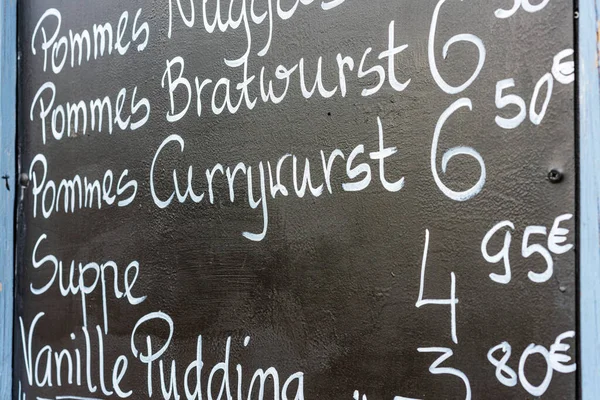 Pommes Nuggets
Pommes Bratwurst 6 50
Pommes Currywurst 6 50€
Suppe 4 95€
Vanille Pudding 3 80€